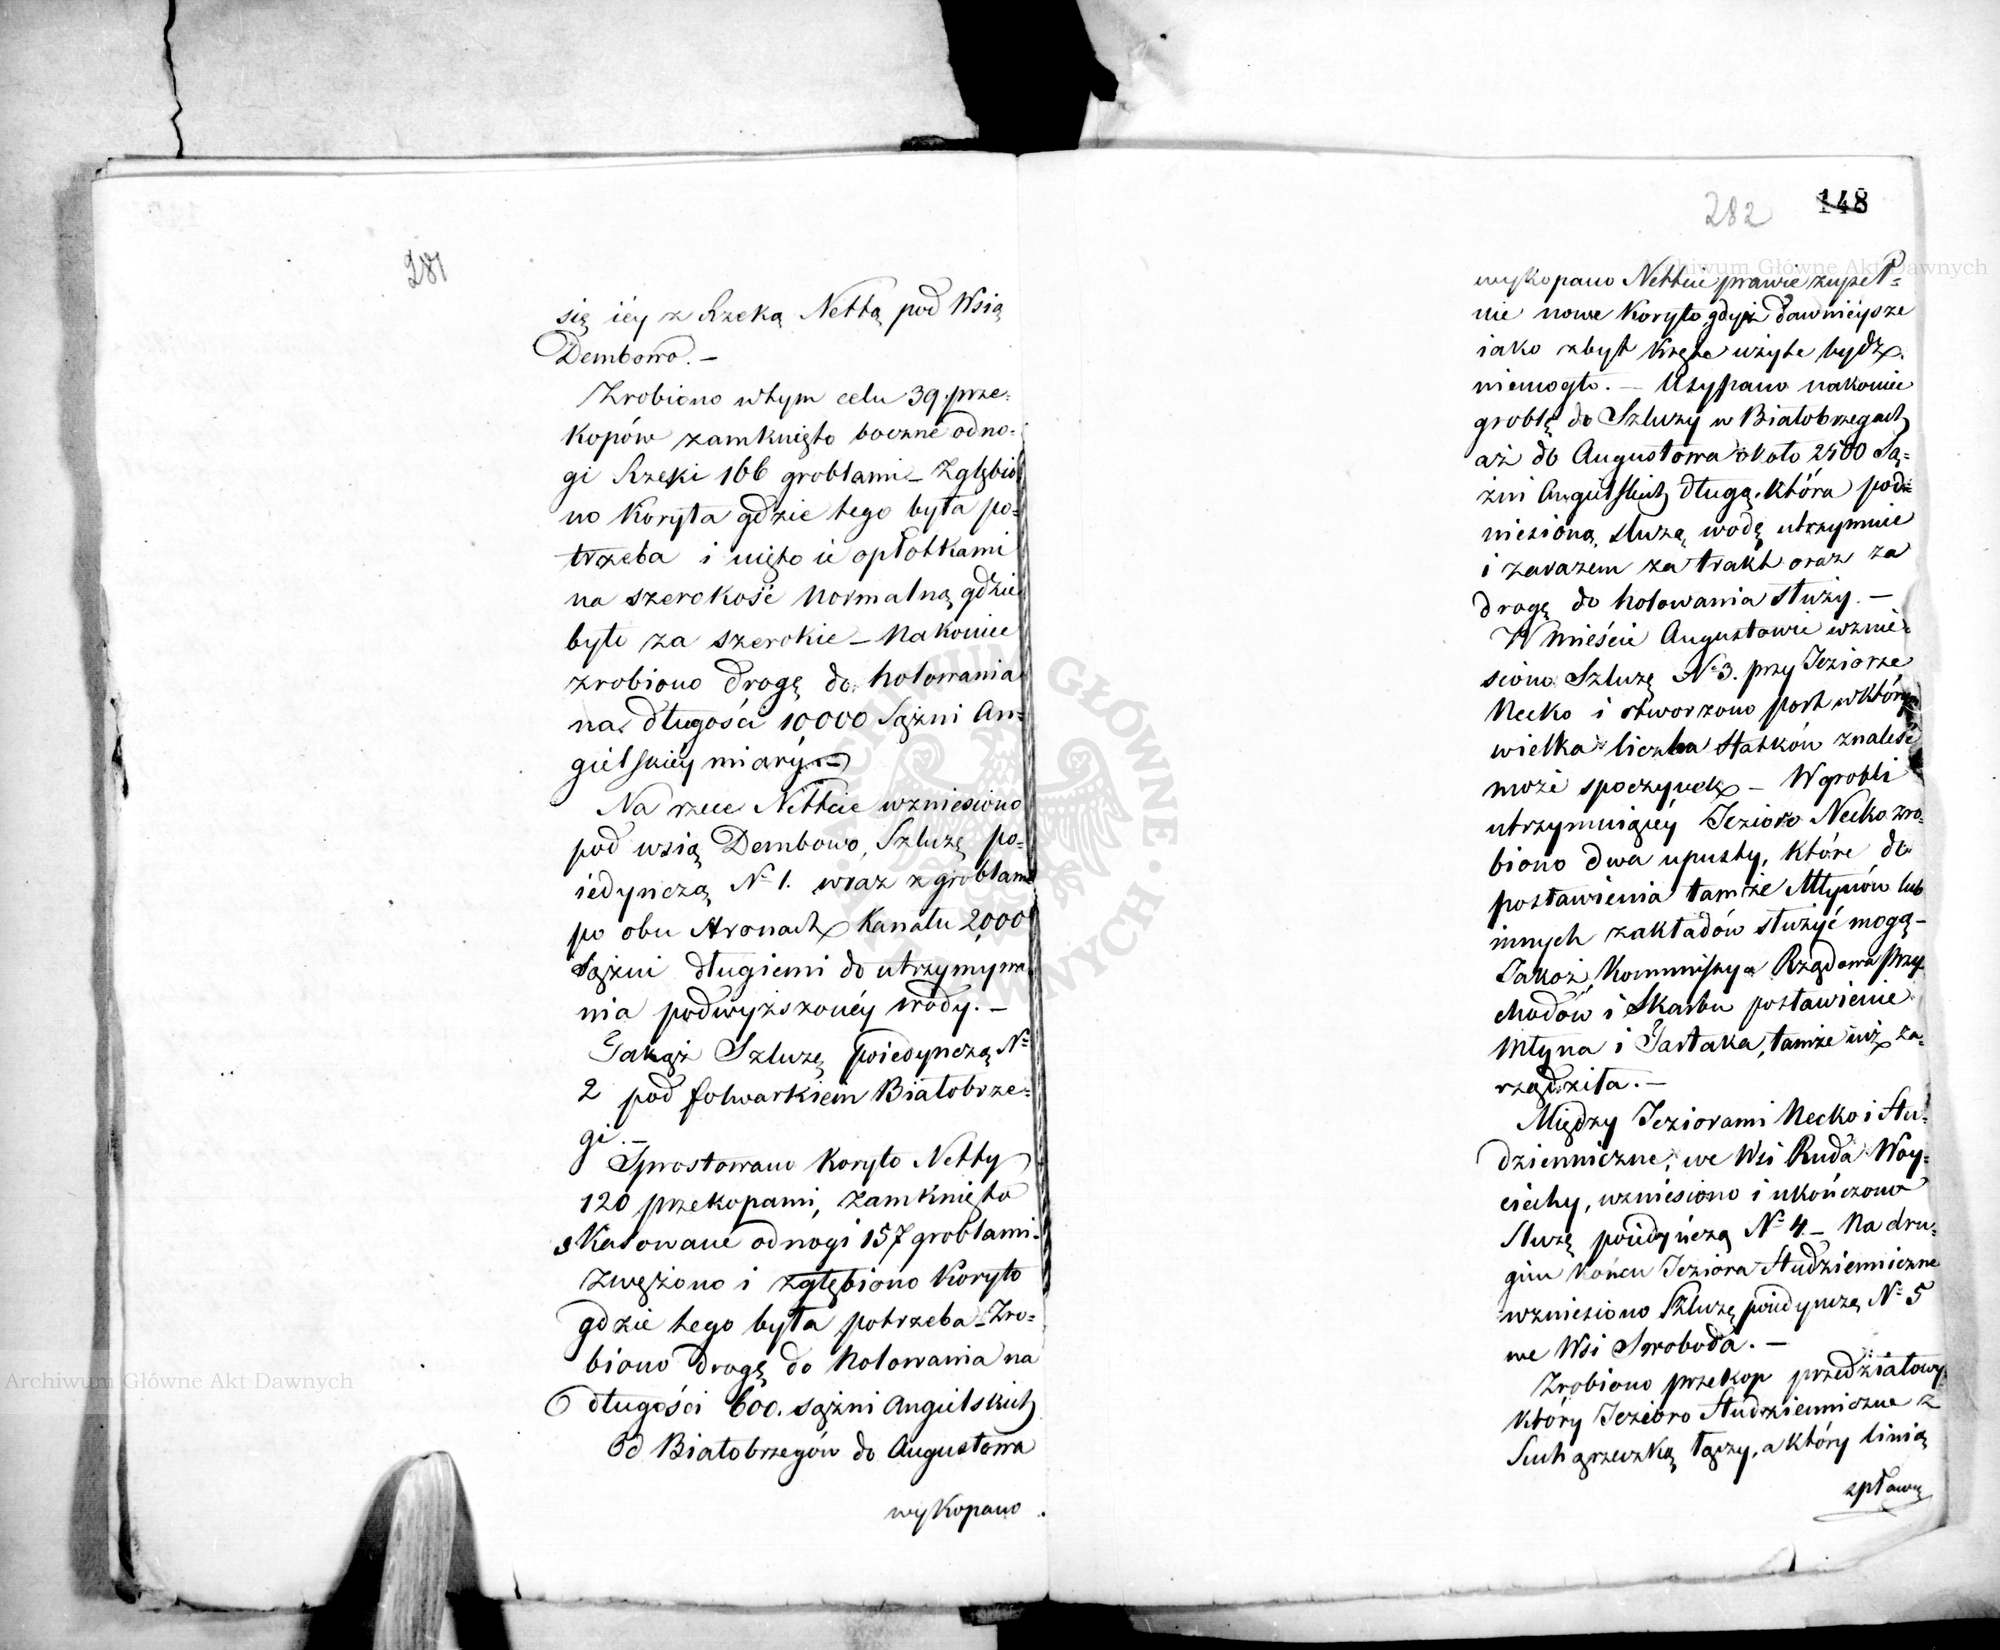 281
się iéy z Rzeką Nettą pod Wsią
Dembowo. –
Zrobiono wtym celu 39. prze-
kopów zamknięto boczne odno-
gi Rzeki 166 groblami – Zgłębio
no Koryta gdzie tego była po-
trzeba i ujęto je opłotkami
na szerokość Normalną gdzie
było za szerokie – Nakoniec
zrobiono drogę do holowania
na długości 10,000 Sążni An-
gielskiéy miary. –
Na rzece Nettcie wzniesiono
pod wsią Dembowo, Szluzę po-
iedynczą No 1. wraz z groblami
po obu stronach Kanału 2,000
Sążni długiemi do utrzymywa
nia podwyższonéy wody. –
Takąż Szluzę poiedynczą No
2 pod folwarkiem Białobrze-
gi. –
Sprostowano Koryto Netty
120 przekopami, zamknięto
skasowane odnogi 157 groblami.
Zwężono i zgłębiono Koryto
gdzie tego była potrzeba – Zro-
biono drogę do holowania na
długości 600. sążni Angielskich
Od Białobrzegów do Augustowa
wykopano
282 148
wykopano Nettcie prawie zupeł-
nie nowe Koryto gdyż dawnieysze
iako zbyt kręte użyte bydź
niemogło. – Usypano nakoniec
groblę do Szluzy w Białobrzegach
aż do Augustowa około 2500 Są-
żni Angielskich długą, która pod-
niesioną szluzą wodę utrzymuie
i zarazem za trakt oraz za
drogę do holowania służy. –
W mieście Augustowie wznie-
siono Szluzę No 3. przy Jeziorze
Necko i stworzono port w którym
wielka liczba statków znaleść
może spoczynek – W grobli
utrzymuiącéy Jezioro Necko zro-
biono dwa upusty, które do
postawienia tamże Młynów lub
innych zakładów służyć mogą –
Jakoż, Kommissya Rządowa Przy
chodów i Skarbu postawienie
Młyna i Tartaka, tamże iuż za-
rządziła. –
Między Jeziorami Necko i Stu-
dzienniczne, we Wsi Ruda Woy-
ciechy, wzniesiono i ukończono
Sluzę poiedynczą No 4. – Na dru-
gim końcu Jeziora Studzienniczne
wzniesiono Szluzę poiedynczą No 5
we Wsi Swoboda. –
Zrobiono przekop przedziałowy
który Jezioro Studzienniczne z
Suchąrzeczką łączy, a który linią
spławną
Archiwum Główne Akt Dawnych
Archiwum Główne Akt Dawnych
ARCHIWUM GŁÓWNE AKT DAWNYCH